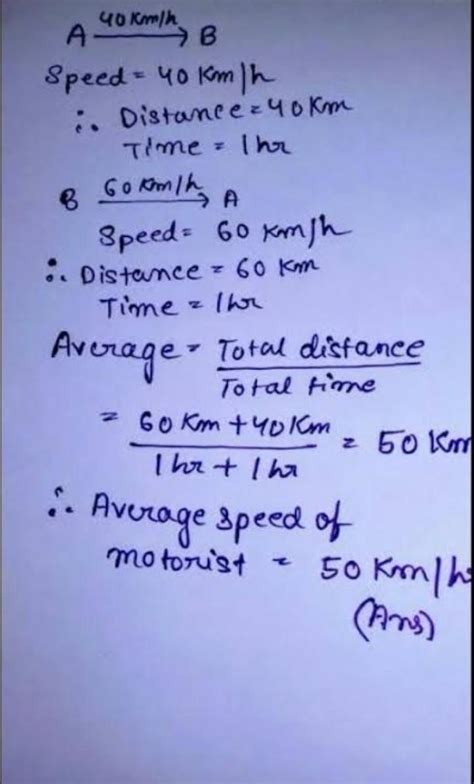 40 Km/h
A → B
Speed = 40 Km/h
∴ Distance = 40 Km
Time = 1 hr
B 60 Km/h → A
Speed = 60 Km/h
∴ Distance = 60 Km
Time = 1 hr
Average = Total distance
Total time
= 60 Km + 40 Km = 50 Km
1 hr + 1 hr
∴ Average speed of
motorist = 50 Km/h
(Ans)